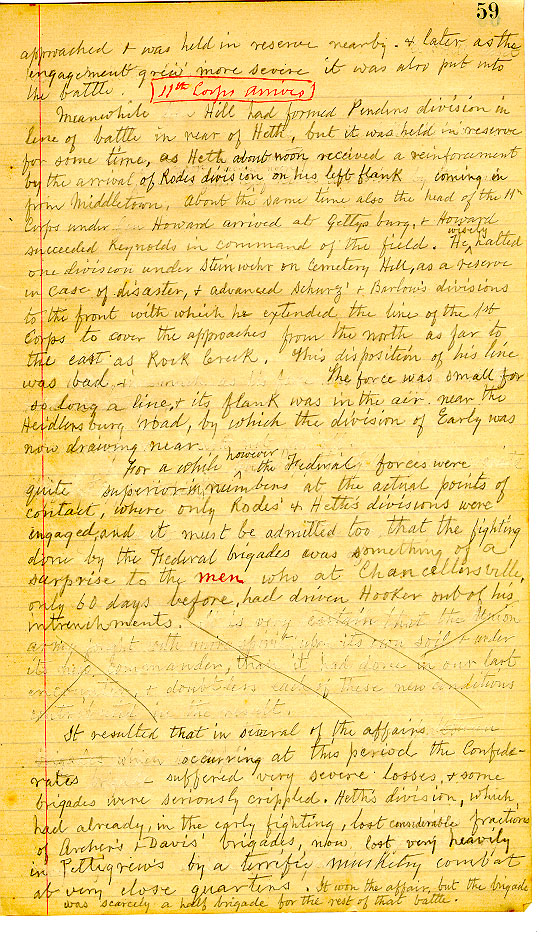 59
approached & was held in reserve nearby. & later as the
engagement grew more severe it was also put into
the battle. 11th Corps arrives
Meanwhile Hill had formed Penders division in
line of battle in rear of Heth, but it was held in reserve
for some time, as Heth about noon received a reinforcement
by the arrival of Rodes division on his left flank coming in
from Middletown. About the same time also the head of the 11th
Corps under Howard arrived at Gettysburg, & Howard
succeeded Reynolds in command of the field. He wisely halted
one division under Steinwehr on Cemetery Hill, as a reserve
in case of disaster, & advanced Schurz' & Barlow's divisions
to the front with which he extended the line of the 1st
Corps to cover the approaches from the north as far to
the east as Rock Creek. This disposition of his line
was bad. The force was small for
so long a line, & its flank was in the air near the
Heidlersburg road, by which the division of Early was
now drawing near.
For a while however the Federal forces were
quite superior in numbers at the actual points of
contact, where only Rodes' & Heth's divisions were
engaged, and it must be admitted too that the fighting
done by the Federal brigades was something of a
surprise to the men who at Chancellorsville,
only 60 days before, had driven Hooker out of his
intrenchments. It is very certain that the Union
army fought with more spirit upon its own soil & under
its new commander, than it had done in our last
encounter, & doubtless each of these new conditions
It resulted that in several of the affairs
which occurring at this period the Confede-
rates suffered very severe losses, & some
brigades were seriously crippled. Heth's division, which
had already, in the early fighting, lost considerable fractions
of Archer's & Davis' brigades, now lost very heavily
in Pettigrew's by a terrific musketry combat
at very close quarters. It won the affair, but the brigade
was scarcely a half brigade for the rest of that battle.